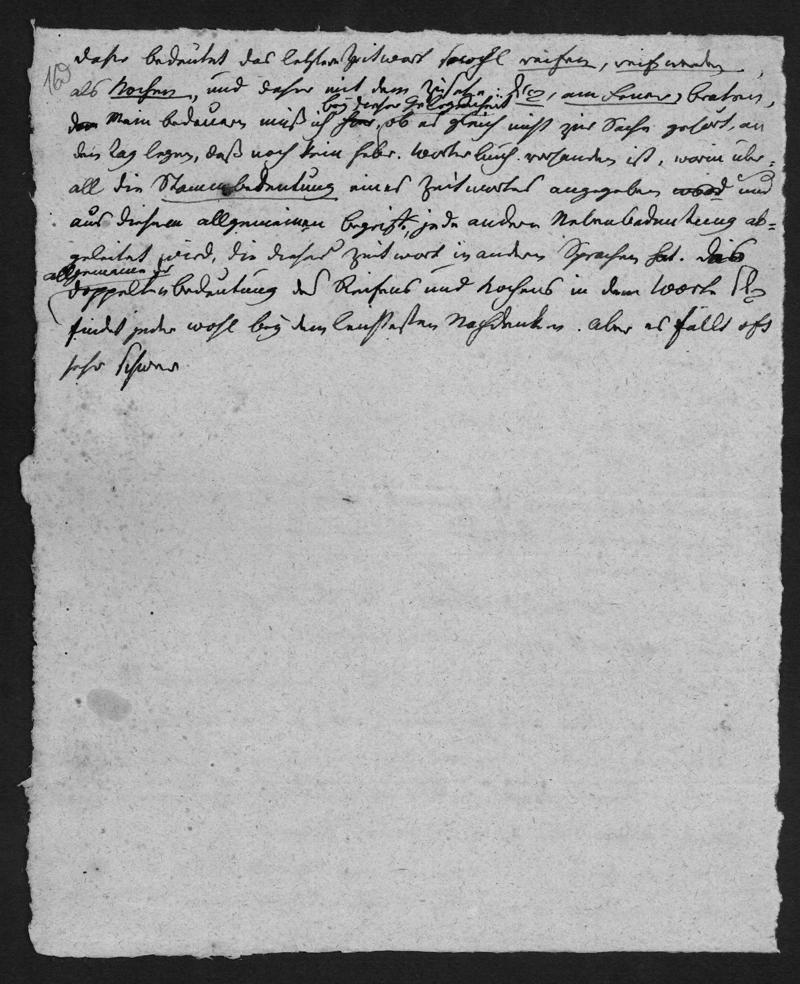 169
daher bedeutet das letztere Zeitwort sowohl reifen, reif werden,
als kochen, und daher mit dem Zusatze: am Feuer, braten,
bey dieser Gelegenheit
Mein bedauern muß ich hier, ob es gleich nicht zur Sache gehört, an
den Tag legen, daß noch kein hebr. Wörterbuch vorhanden ist, worin über-
all die Stammbedeutung eines Zeitwortes angegeben wird und
aus diesem allgemeinen Begriffe jede andere Nebenbedeutung ab-
geleitet wird, die dieses Zeitwort in andern Sprachen hat. Das
allgemeine
doppelten bedeutung des Reifens und Kochens in dem Worte
findet jeder wohl bey dem leichtesten Nachdenken. aber es fällt oft
sehr schwer